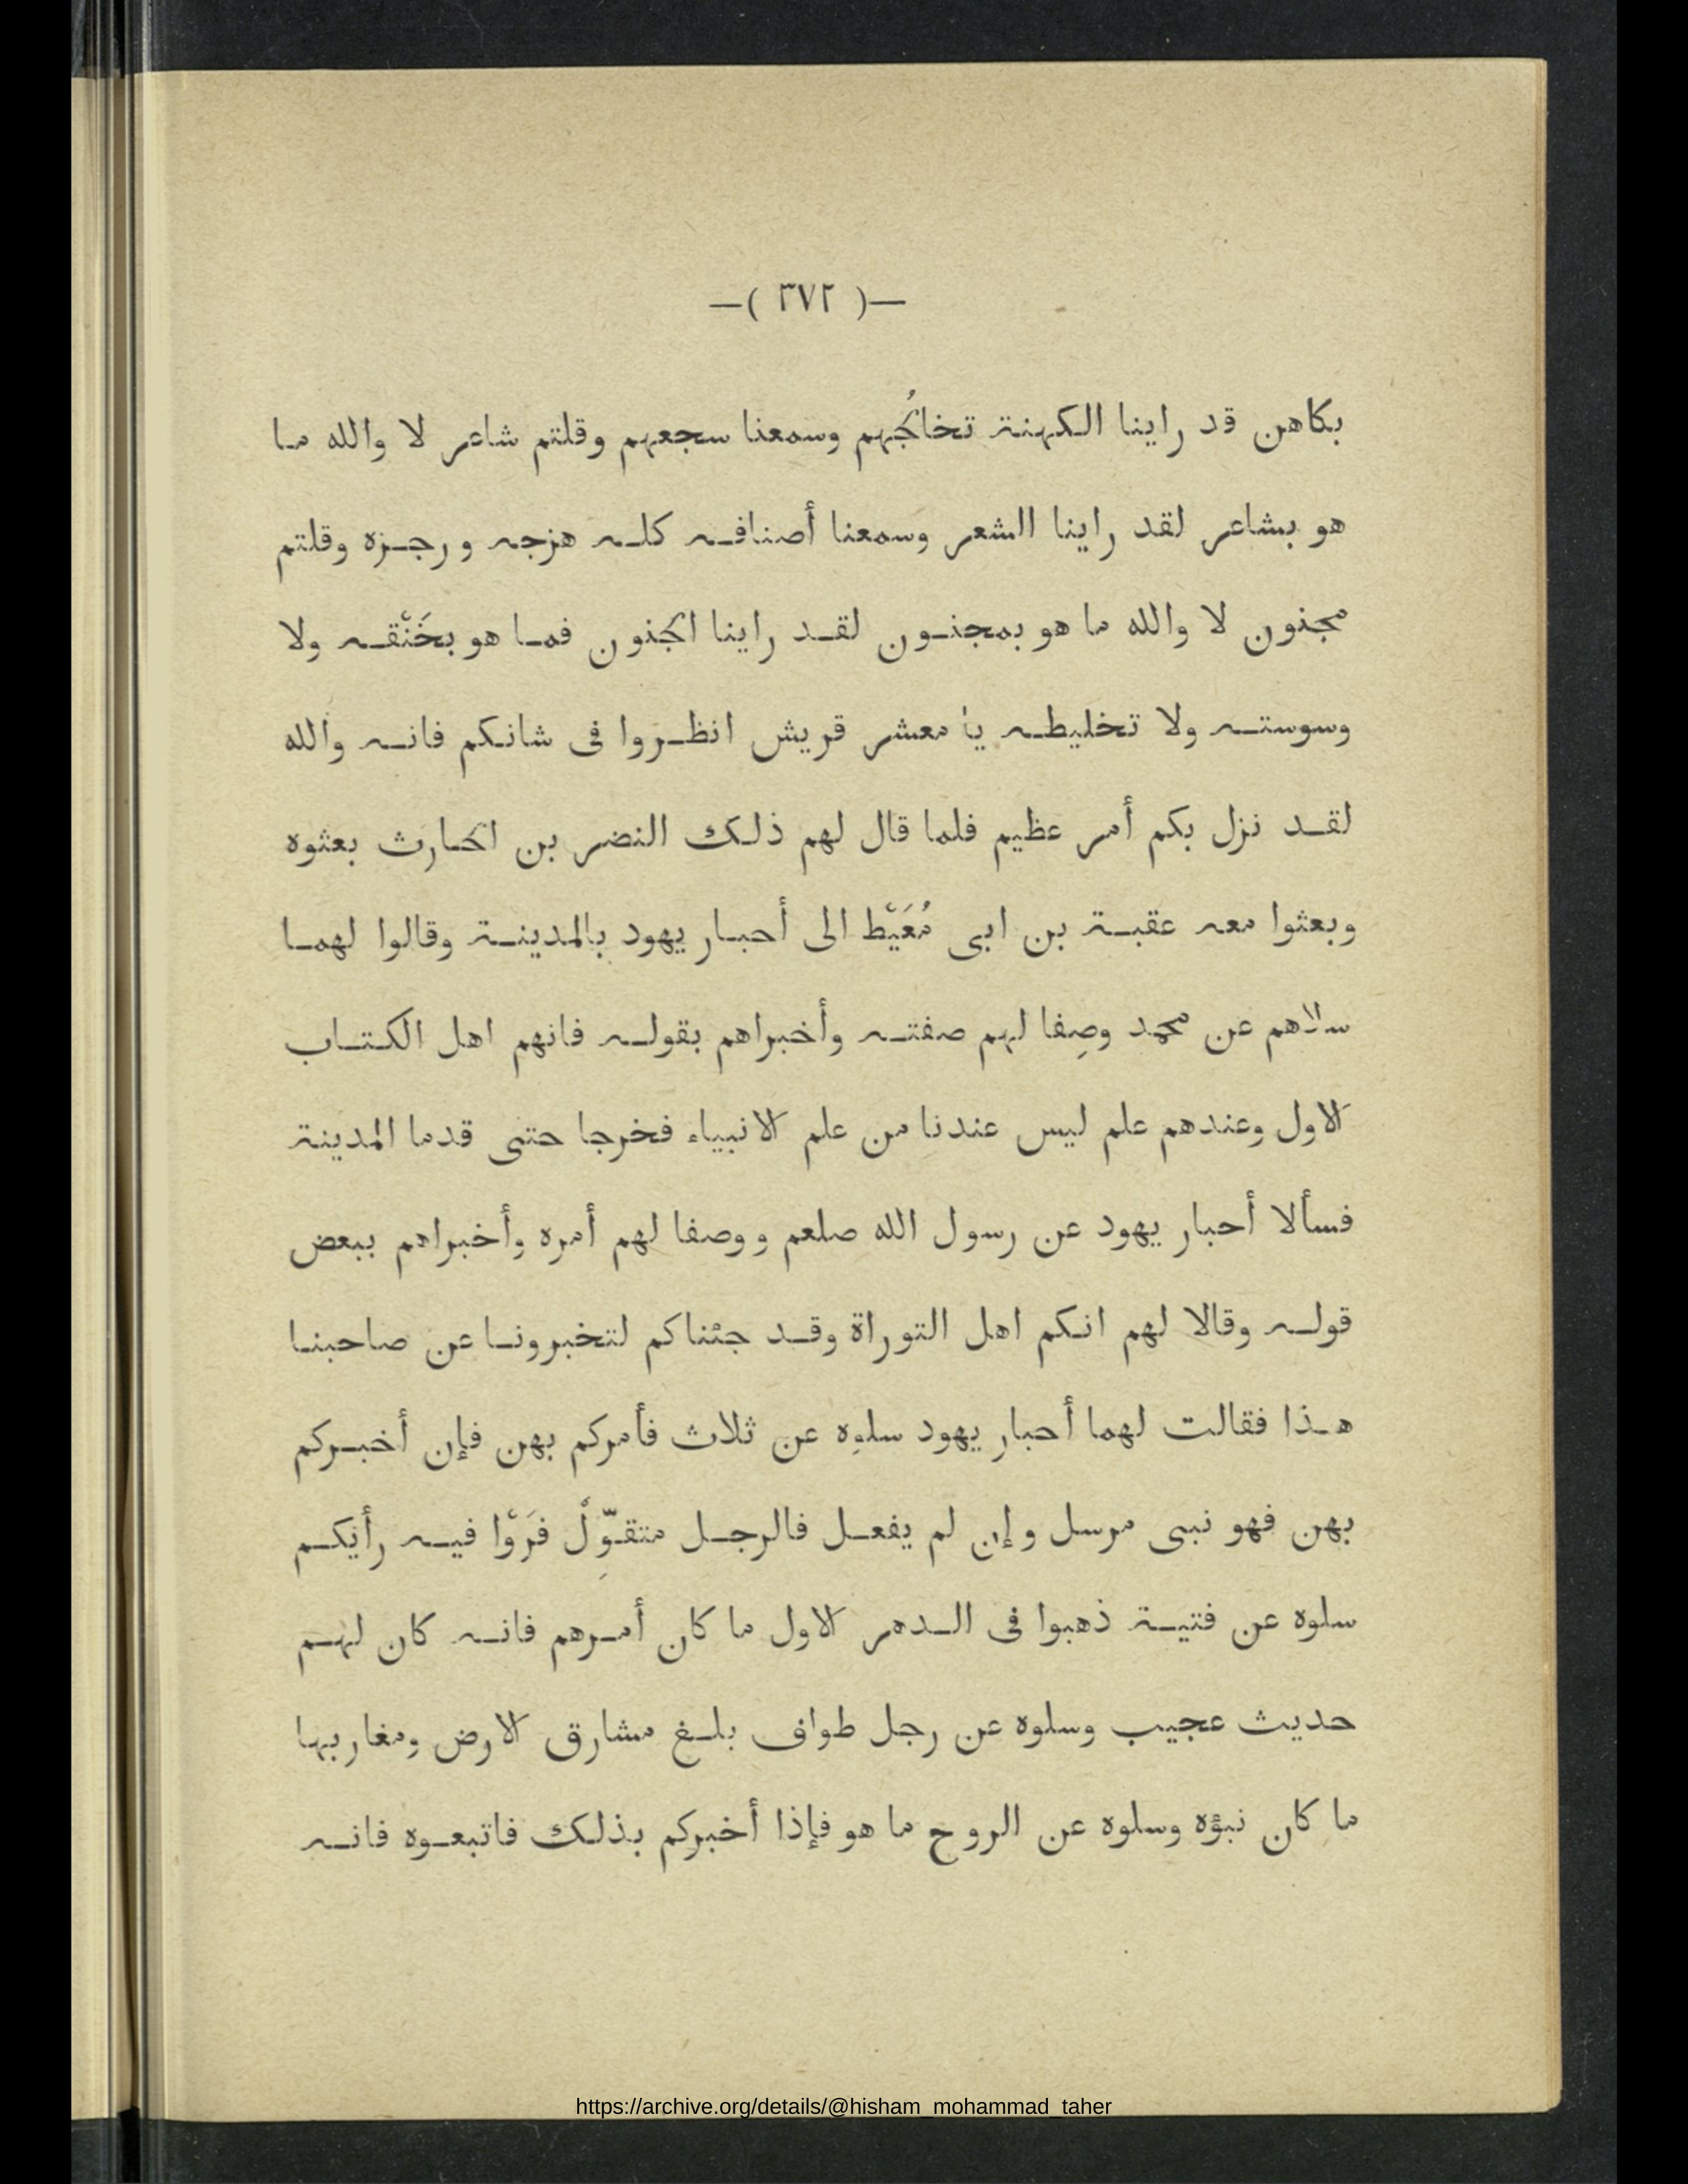 —( ٣٧٢ )—
بكاهن قد راينا الكهنة تخالُجهم وسمعنا سجعهم وقلتم شاعر لا والله ما
هو بشاعر لقد راينا الشعر وسمعنا أصنافه كله هزجه ورجزه وقلتم
مجنون لا والله ما هو بمجنون لقد راينا الجنون فما هو بخَنْقه ولا
وسوسته ولا تخليطه يا معشر قريش انظروا فى شانكم فانه والله
لقد نزل بكم أمر عظيم فلما قال لهم ذلك النضر بن الحارث بعثوه
وبعثوا معه عقبة بن ابى مُعَيْط الى أحبار يهود بالمدينة وقالوا لهما
سلاهم عن محمد وصِفا لهم صفته وأخبراهم بقوله فانهم اهل الكتاب
الاول وعندهم علم ليس عندنا من علم الانبياء فخرجا حتى قدما المدينة
فسألا أحبار يهود عن رسول الله صلعم ووصفا لهم أمره وأخبراهم ببعض
قوله وقالا لهم انكم اهل التوراة وقد جئناكم لتخبرونا عن صاحبنا
هذا فقالت لهما أحبار يهود سلوه عن ثلاث فأمركم بهن فإن أخبركم
بهن فهو نبى مرسل وإن لم يفعل فالرجل متقوِّلْ فرَوْا فيه رأيكم
سلوه عن فتية ذهبوا فى الدهر الاول ما كان أمرهم فانه كان لهم
حديث عجيب وسلوه عن رجل طواف بلغ مشارق الارض ومغاربها
ما كان نبؤه وسلوه عن الروح ما هو فإذا أخبركم بذلك فاتبعوه فانه
https://archive.org/details/@hisham_mohammad_taher